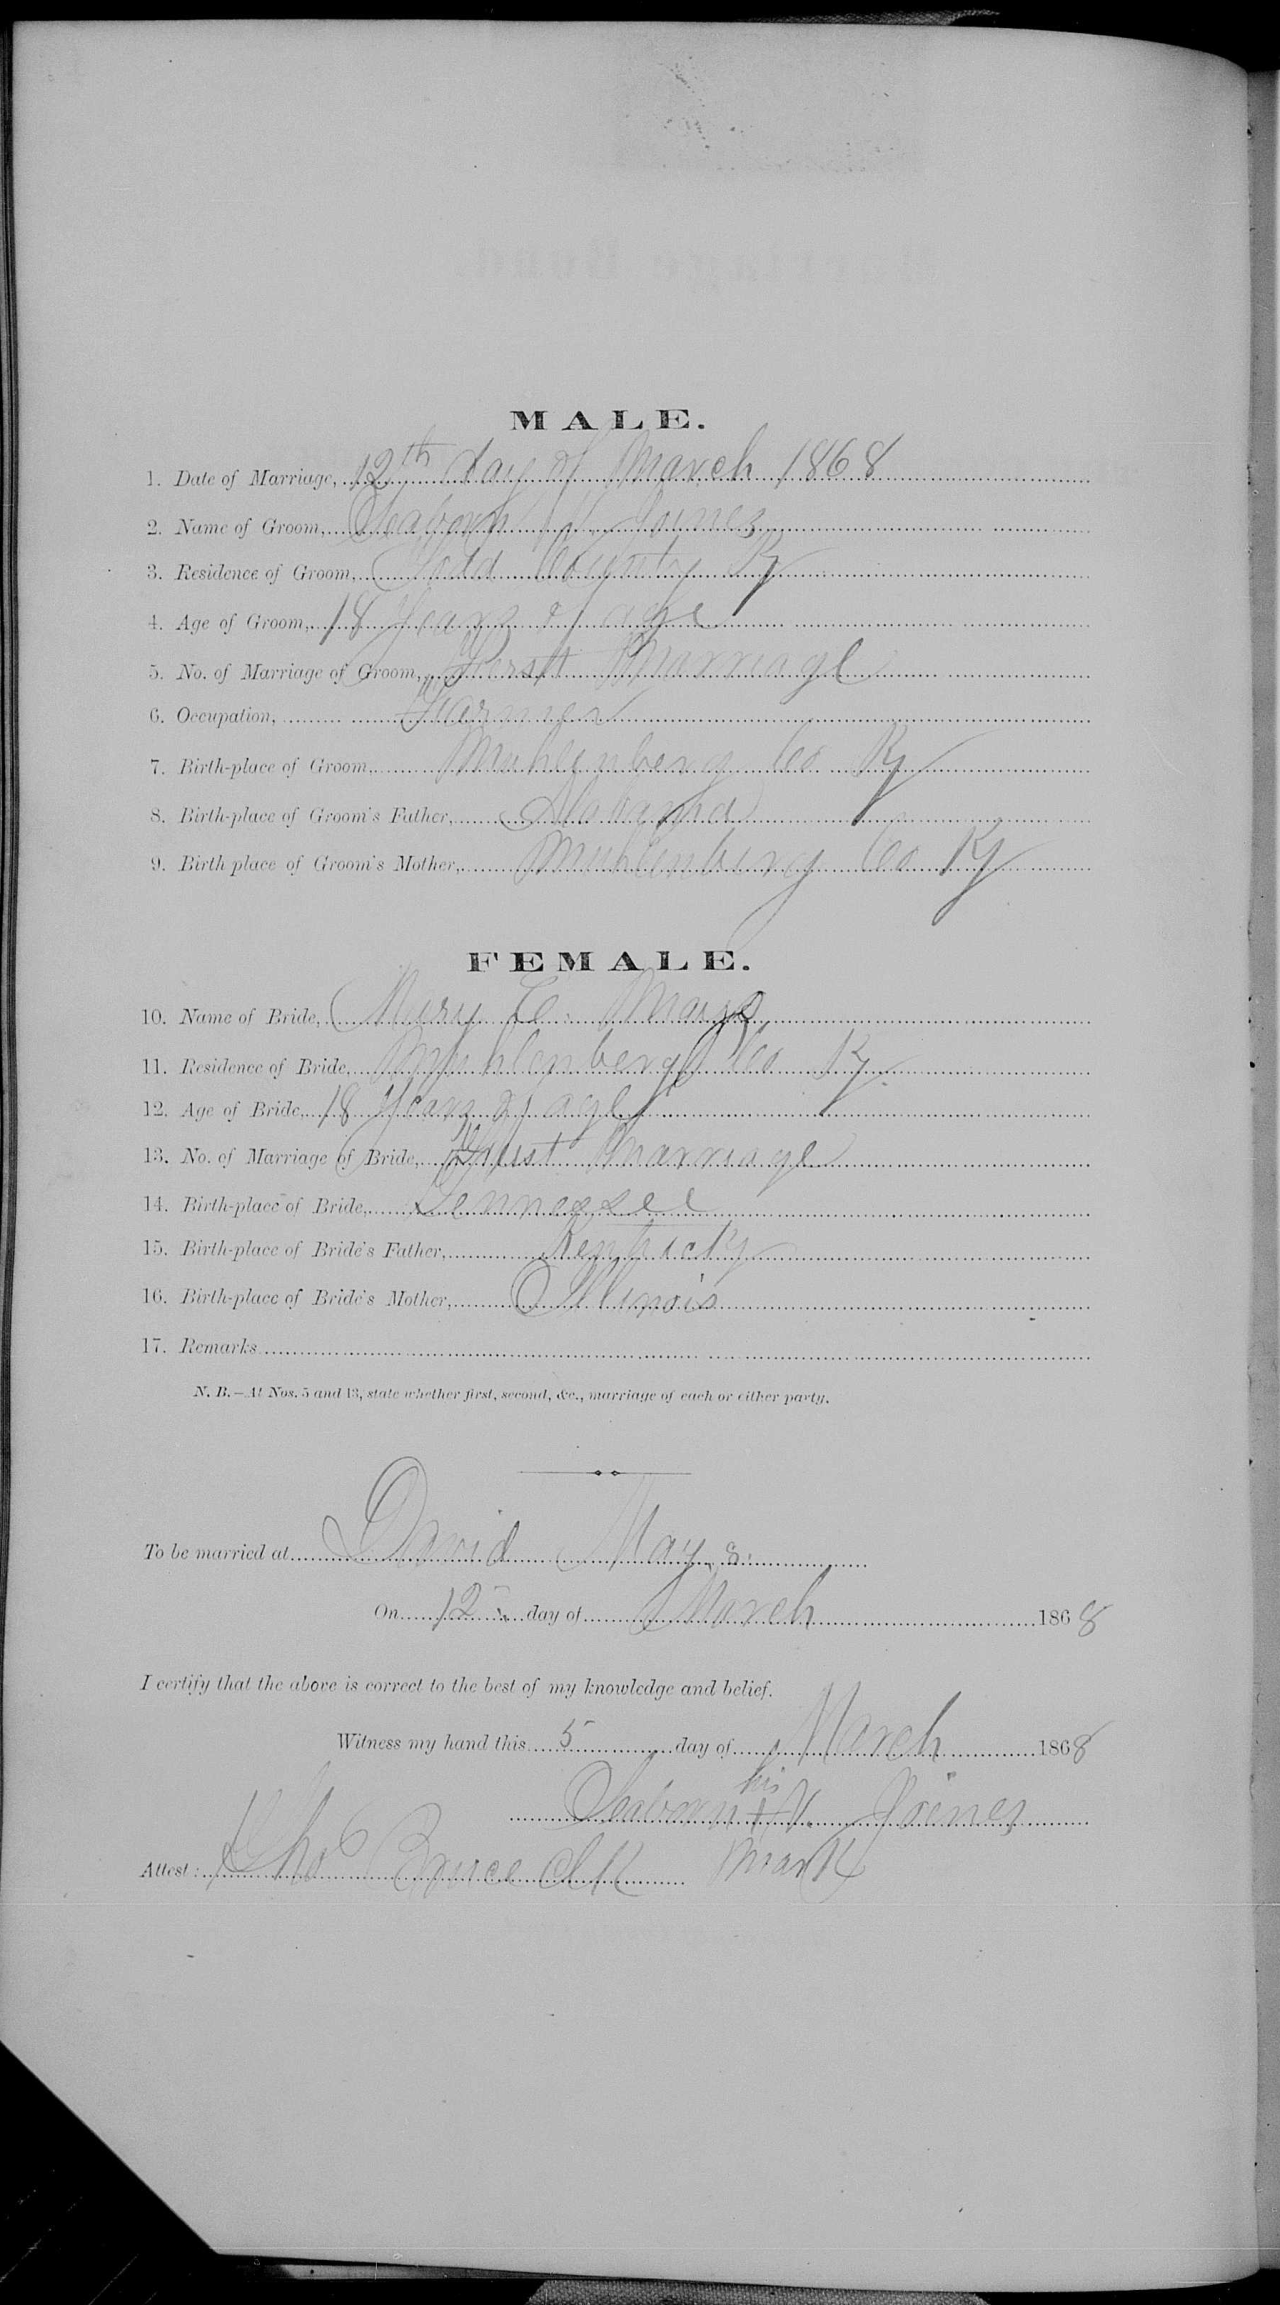 MALE.
1. Date of Marriage, 12th day of March 1868
2. Name of Groom, Seaborn N. Joines
3. Residence of Groom, Todd County Ky
4. Age of Groom, 18 Years of age
5. No. of Marriage of Groom, First Marriage
6. Occupation, Farmer
7. Birth-place of Groom, Muhlenberg Co Ky
8. Birth-place of Groom's Father, Alabama
9. Birth place of Groom's Mother, Muhlenberg Co Ky
FEMALE.
10. Name of Bride, Mary E. Mays
11. Residence of Bride, Muhlenberg Co Ky.
12. Age of Bride, 18 Years of age
13. No. of Marriage of Bride, First Marriage
14. Birth-place of Bride, Tennessee
15. Birth-place of Bride's Father, Kentucky
16. Birth-place of Bride's Mother, Illinois
17. Remarks
N. B.—At Nos. 5 and 13, state whether first, second, &c., marriage of each or either party.
To be married at David Mays.
On 12 day of March 1868
I certify that the above is correct to the best of my knowledge and belief.
Witness my hand this 5 day of March 1868
his
Seaborn + N. Joines
Attest: Tho Bruce Clk mark